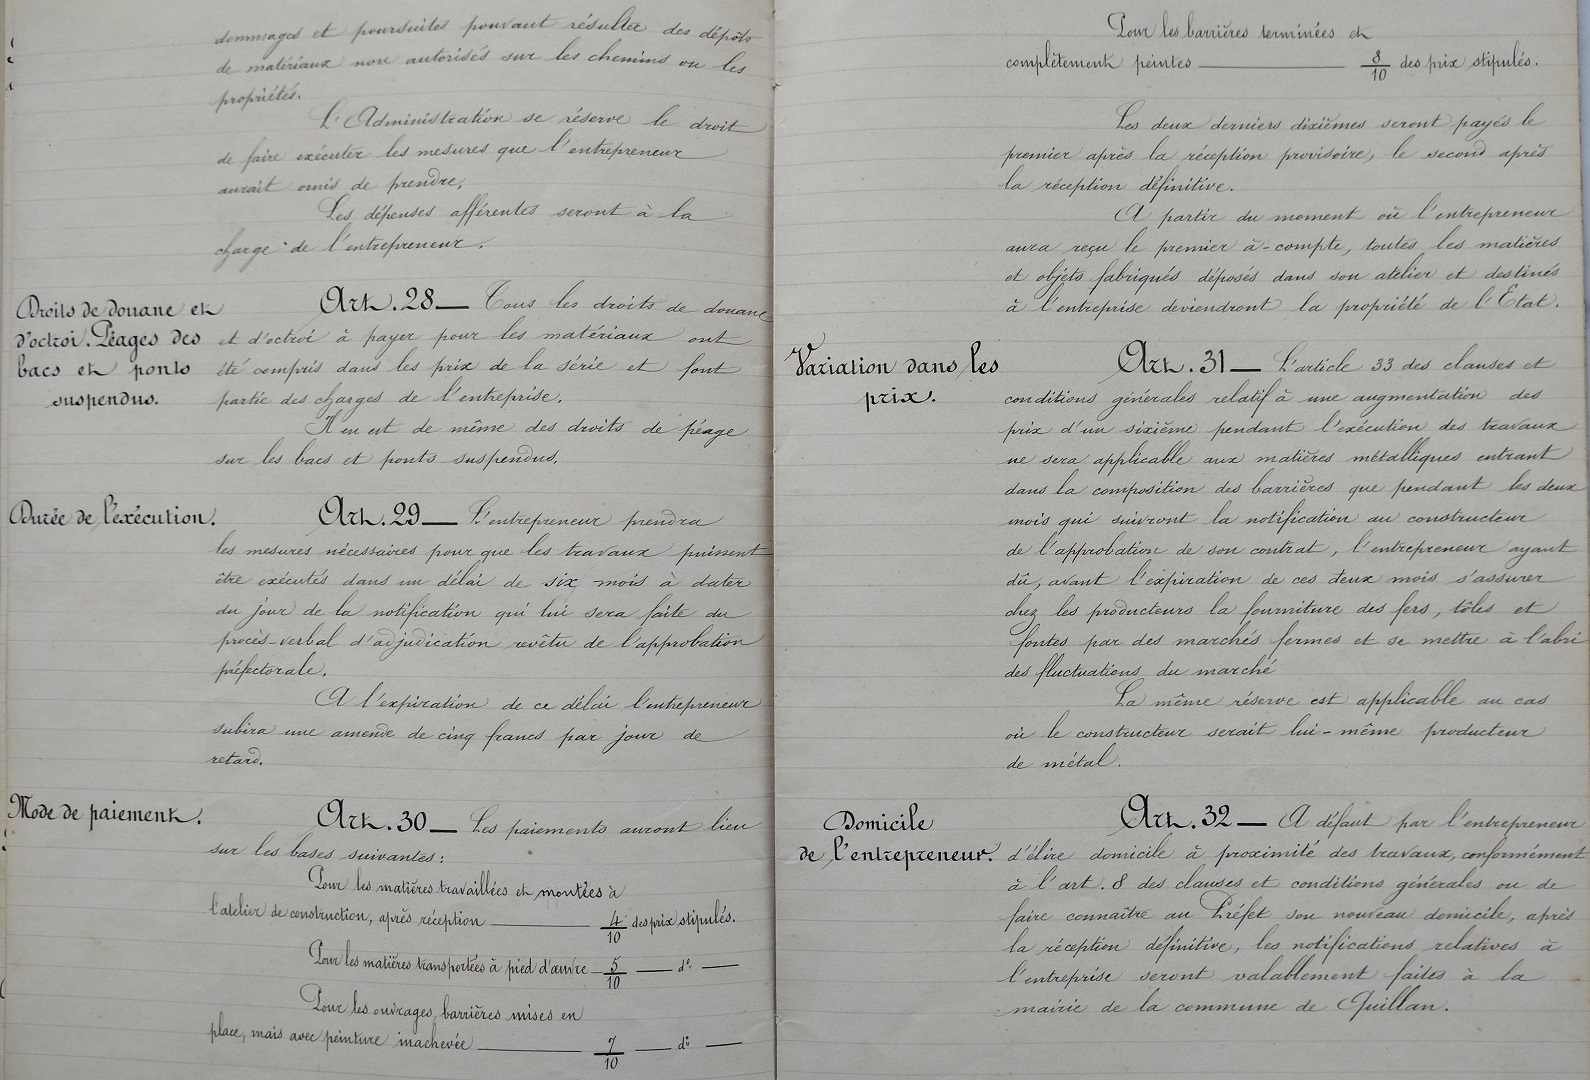 dommages et poursuites pouvant résulter des dépôts
de matériaux non autorisés sur les chemins ou les
propriétés.
L'Administration se réserve le droit
de faire exécuter les mesures que l'entrepreneur
aurait omis de prendre.
Les dépenses afférentes seront à la
charge de l'entrepreneur.
Droits de douane et
d'octroi. Péages des
bacs et ponts
suspendus.
Art. 28 — Tous les droits de douane
et d'octroi à payer pour les matériaux ont
été compris dans les prix de la série et font
partie des charges de l'entreprise.
Il en est de même des droits de péage
sur les bacs et ponts suspendus.
Durée de l'exécution.
Art. 29 — L'entrepreneur prendra
les mesures nécessaires pour que les travaux puissent
être exécutés dans un délai de six mois à dater
du jour de la notification qui lui sera faite du
procès-verbal d'adjudication revêtu de l'approbation
préfectorale.
A l'expiration de ce délai l'entrepreneur
subira une amende de cinq francs par jour de
retard.
Mode de paiement.
Art. 30 — Les paiements auront lieu
sur les bases suivantes :
Pour les matières travaillées et montées à
l'atelier de construction, après réception — 4/10 des prix stipulés.
Pour les matières transportées à pied d'œuvre — 5/10 — d° —
Pour les ouvrages, barrières mises en
place, mais avec peinture inachevée — 7/10 — d° —
Pour les barrières terminées et
complètement peintes — 8/10 des prix stipulés.
Les deux derniers dixièmes seront payés le
premier après la réception provisoire, le second après
la réception définitive.
A partir du moment où l'entrepreneur
aura reçu le premier à-compte, toutes les matières
et objets fabriqués déposés dans son atelier et destinés
à l'entreprise deviendront la propriété de l'Etat.
Variation dans les
prix.
Art. 31 — L'article 33 des clauses et
conditions générales relatif à une augmentation des
prix d'un sixième pendant l'exécution des travaux
ne sera applicable aux matières métalliques entrant
dans la composition des barrières que pendant les deux
mois qui suivront la notification au constructeur
de l'approbation de son contrat, l'entrepreneur ayant
dû, avant l'expiration de ces deux mois s'assurer
chez les producteurs la fourniture des fers, tôles et
fontes par des marchés fermes et se mettre à l'abri
des fluctuations du marché
La même réserve est applicable au cas
où le constructeur serait lui-même producteur
de métal.
Domicile
de l'entrepreneur.
Art. 32 — A défaut par l'entrepreneur
d'élire domicile à proximité des travaux, conformément
à l'art. 8 des clauses et conditions générales ou de
faire connaître au Préfet son nouveau domicile, après
la réception définitive, les notifications relatives à
l'entreprise seront valablement faites à la
mairie de la commune de Quillan.